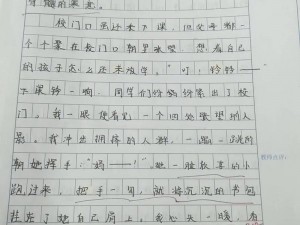 校门口虽还未下课,但父母都一
个个聚在校门口朝里张望,想看自己
的孩子怎么还未放学。"叮,铃铃——"
下课铃一响,同学们纷纷奔出了校
门。我一眼便看见一个四处张望的人
影。我冲出拥挤的人群,一蹦一跳的
朝她挥手:"妈——!"她一脸欣喜的小
跑过来,把手一勾,就将沉沉的书包
挂在了她自己肩上。我心头一暖,看